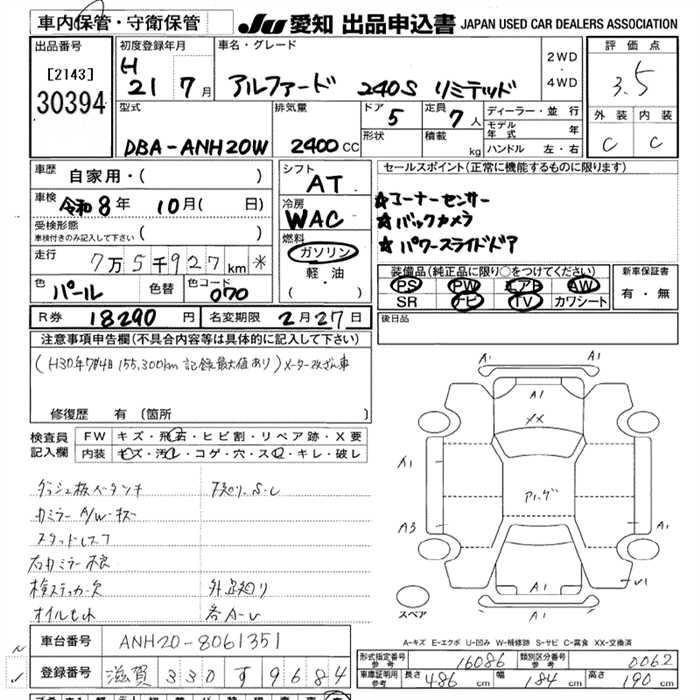 車内保管・守衛保管
JU 愛知 出品申込書 JAPAN USED CAR DEALERS ASSOCIATION
出品番号
[2143]
30394
初度登録年月
H 21 7月
車名・グレード
アルファード 240S リミテッド
2WD
・
4WD
評価点
3.5
外装 内装
C C
型式
DBA-ANH20W
排気量
2400 CC
ドア
5
形状
定員
7人
積載
kg
ディーラー・並行
モデル年式 年
ハンドル 左・右
車歴 自家用・( )
車検 令和8年 10月( 日)
受検形態
車検付きのみ記入して下さい ( )
走行 7万5千927km *
色 パール 色替 色コード 070
シフト
AT
冷房
WAC
燃料
ガソリン
・
軽油
( )
セールスポイント(正常に機能するものに限ります)
★コーナーセンサー
★バックカメラ
★パワースライドドア
装備品(純正品に限り○をつけてください)
PS PW エアB AW
SR ナビ TV カワシート
新車保証書
有・無
R券 18290円 名変期限 2月27日
後日品
注意事項申告欄(不具合内容等は具体的に記入して下さい)
(H30年7月4日 155,300km 記録最大値あり)メーター改ざん車
修復歴 有 (箇所 )
検査員記入欄
FW キズ・飛石・ヒビ割・リペア跡・X要
内装 キズ・汚れ・コゲ・穴・スレ・キレ・破レ
カミラー A/W・キズ
外足廻り
各A-U
A1
A1
XX
A1
A3
A1
A1
A1
スペア
A-キズ E-エクボ U-凹み W-補修跡 S-サビ C-腐食 XX-交換済
車台番号 ANH20-8061351
登録番号 滋賀 330 す 9684
形式指定番号 参考 16086 類別区分番号 参考 0062
車庫証明用 参考 長さ 486cm 幅 184cm 高さ 190cm